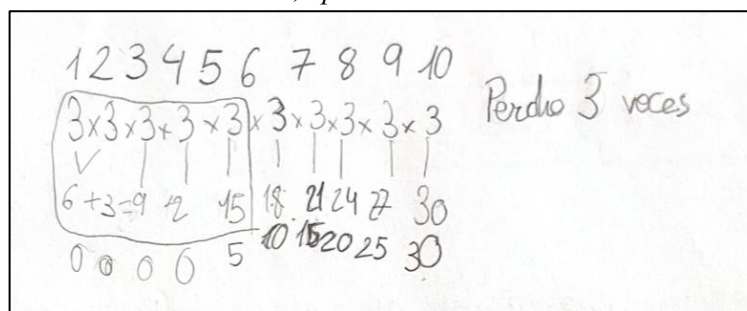 1 2 3 4 5 6 7 8 9 10
3 x 3 x 3 x 3 x 3 x 3 x 3 x 3 x 3 x 3
Perdio 3 veces
6 + 3 = 9 12 15 18 21 24 27 30
0 0 0 0 5 10 15 20 25 30